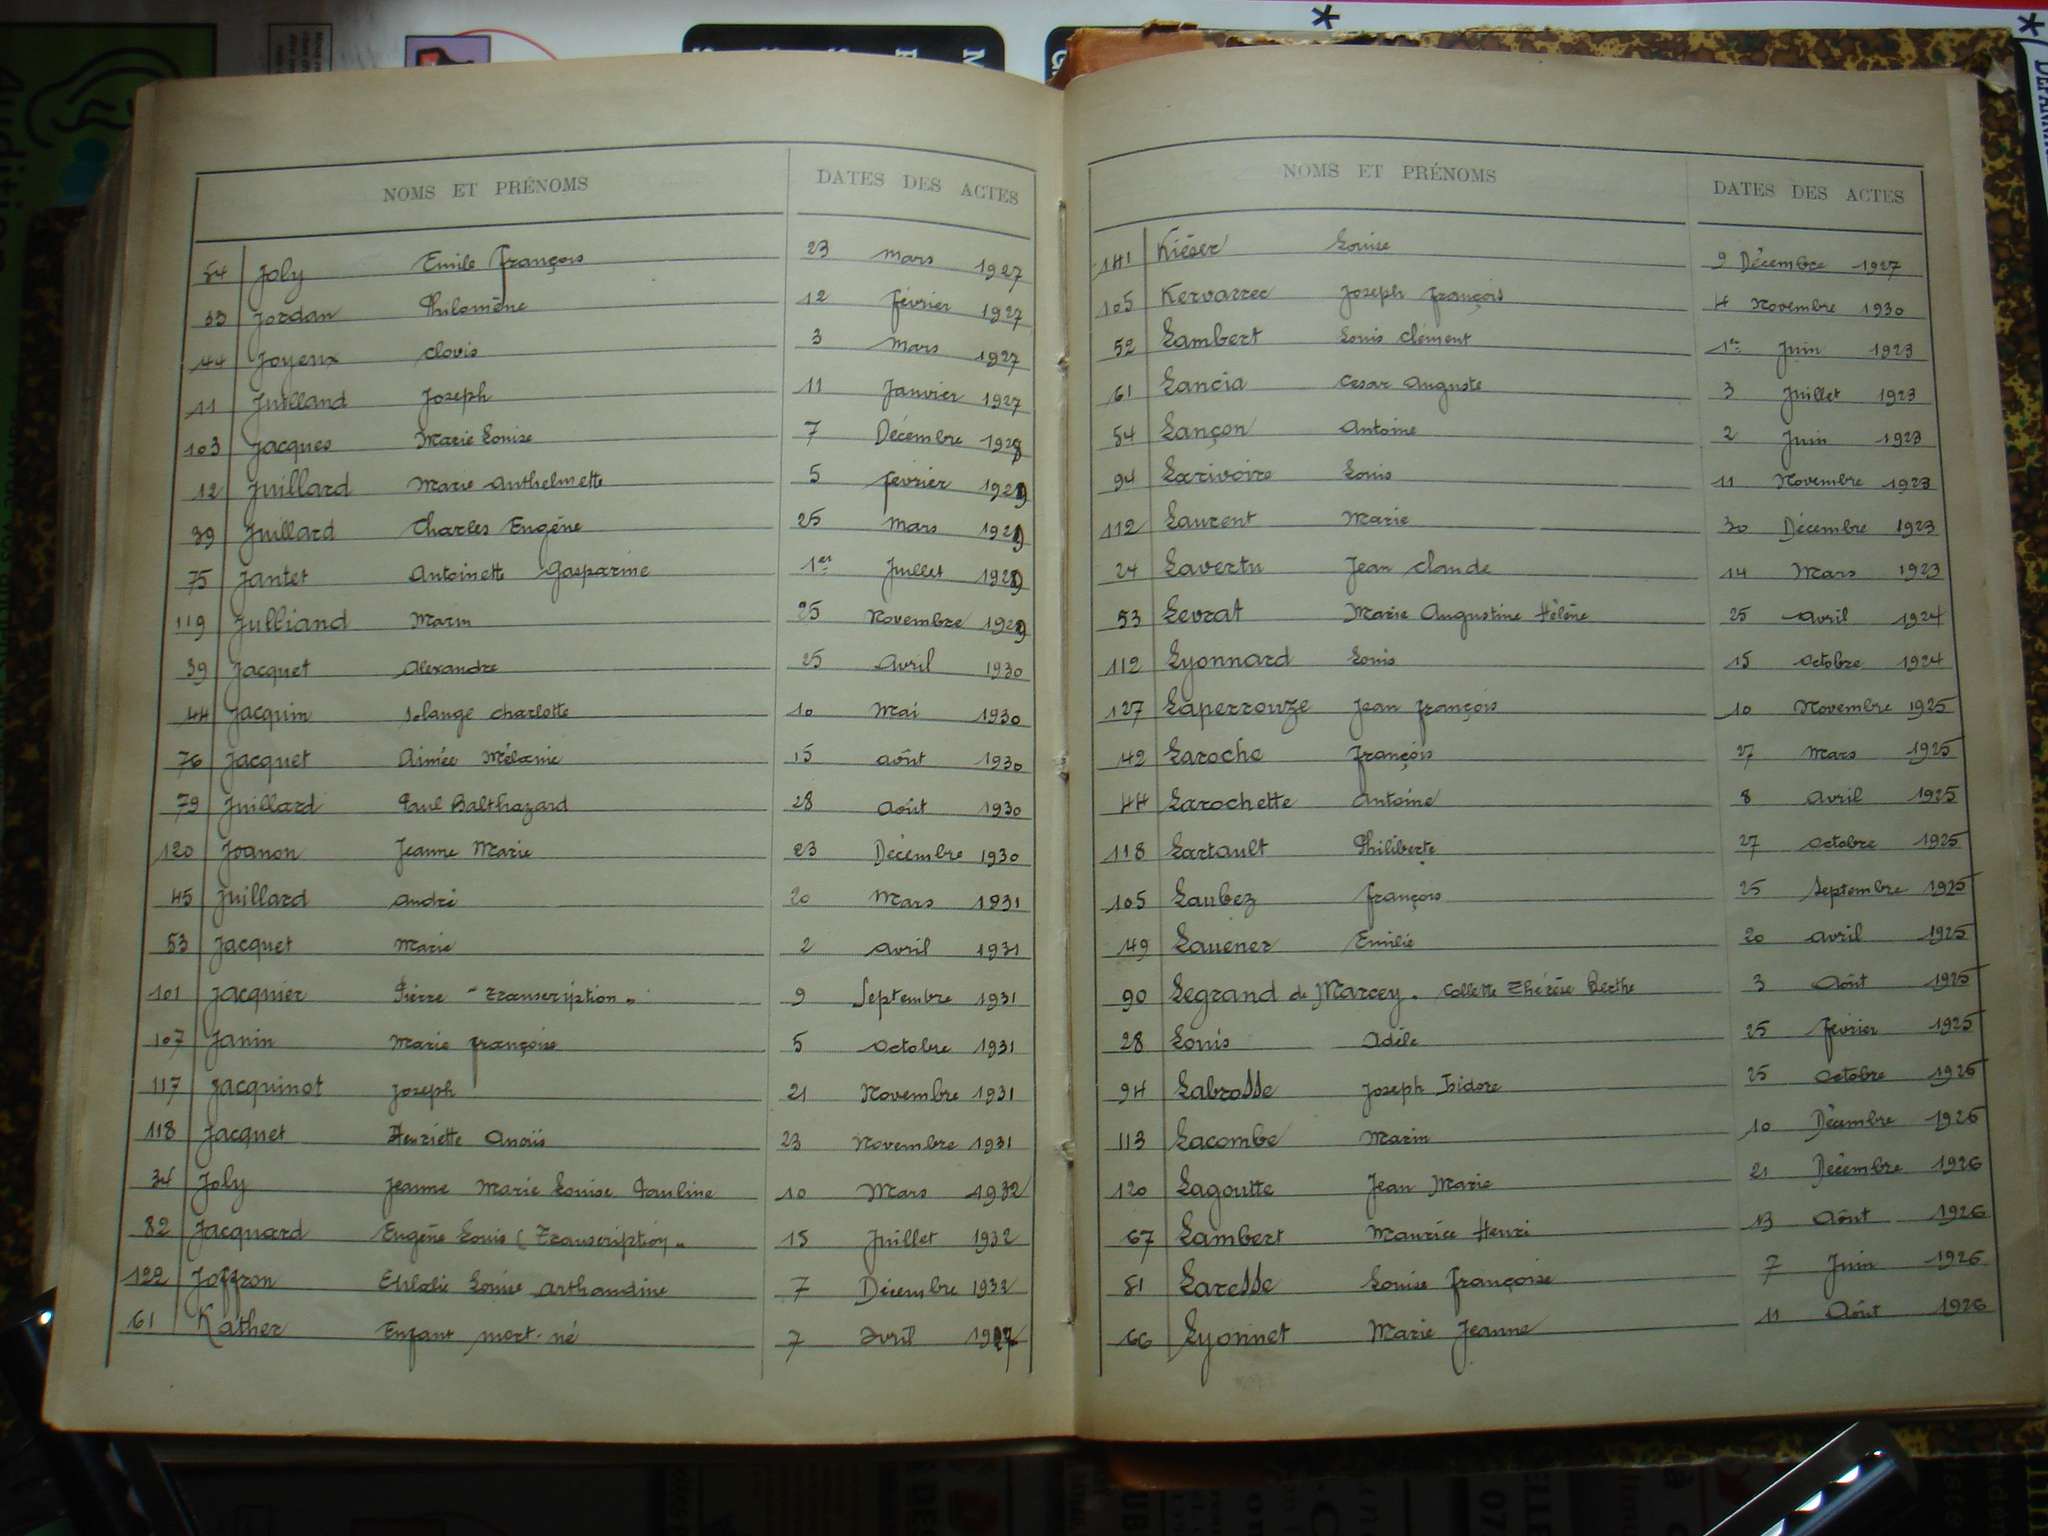 NOMS ET PRÉNOMS DATES DES ACTES
54 Joly Emile François 23 Mars 1927
33 Jordan Philomène 12 Février 1927
44 Joyeux Clovis 3 Mars 1927
11 Juilland Joseph 11 Janvier 1927
103 Jacques Marie Louise 7 Décembre 1928
12 Juillard Marie Anthelmette 5 Février 1929
39 Juillard Charles Eugène 25 Mars 1929
75 Jantet Antoinette Gasparine 1er Juillet 1929
119 Julliand Marin 25 Novembre 1929
39 Jacquet Alexandre 25 Avril 1930
44 Jacquin Solange Charlotte 10 Mai 1930
76 Jacquet Aimée Mélanie 15 Août 1930
79 Juillard Paul Balthazard 28 Août 1930
120 Joanon Jeanne Marie 23 Décembre 1930
45 Juillard André 20 Mars 1931
53 Jacquet Marie 2 Avril 1931
101 Jacquier Pierre "Transcription" 9 Septembre 1931
107 Janin Marie François 5 Octobre 1931
117 Jacquinot Joseph 21 Novembre 1931
118 Jacquet Henriette Anaïs 23 Novembre 1931
34 Joly Jeanne Marie Louise Pauline 10 Mars 1932
82 Jacquard Eugène Louis (Transcription" 15 Juillet 1932
122 Joffron Louise 7 Décembre 1932
61 Kather Enfant mort-né 7 Avril 1927
NOMS ET PRÉNOMS DATES DES ACTES
141 Kiéser Louise 9 Décembre 1927
105 Kervarrec Joseph François 4 Novembre 1930
52 Lambert Louis Clément 1er Juin 1923
61 Lancia Cesar Auguste 3 Juillet 1923
54 Lançon Antoine 2 Juin 1923
94 Larivoire Louis 11 Novembre 1923
112 Laurent Marie 30 Décembre 1923
24 Lavertu Jean Claude 14 Mars 1923
53 Levrat Marie Augustine Hélène 25 Avril 1924
112 Lyonnard Louis 15 Octobre 1924
127 Laperrouze Jean François 10 Novembre 1925
42 Laroche François 27 Mars 1925
44 Larochette Antoine 8 Avril 1925
118 Lartault Philiberte 27 Octobre 1925
105 Laubez François 25 Septembre 1925
49 Lauener Emilie 20 Avril 1925
90 Legrand de Marcey. Collette Thérèse Berthe 3 Août 1925
28 Louis Adèle 25 Février 1925
94 Labrosse Joseph Isidore 25 Octobre 1926
113 Lacombe Marin 10 Décembre 1926
120 Lagoutte Jean Marie 21 Décembre 1926
67 Lambert Maurice Henri 13 Août 1926
51 Laresse Louise Françoise 7 Juin 1926
66 Lyonnet Marie Jeanne 11 Août 1926